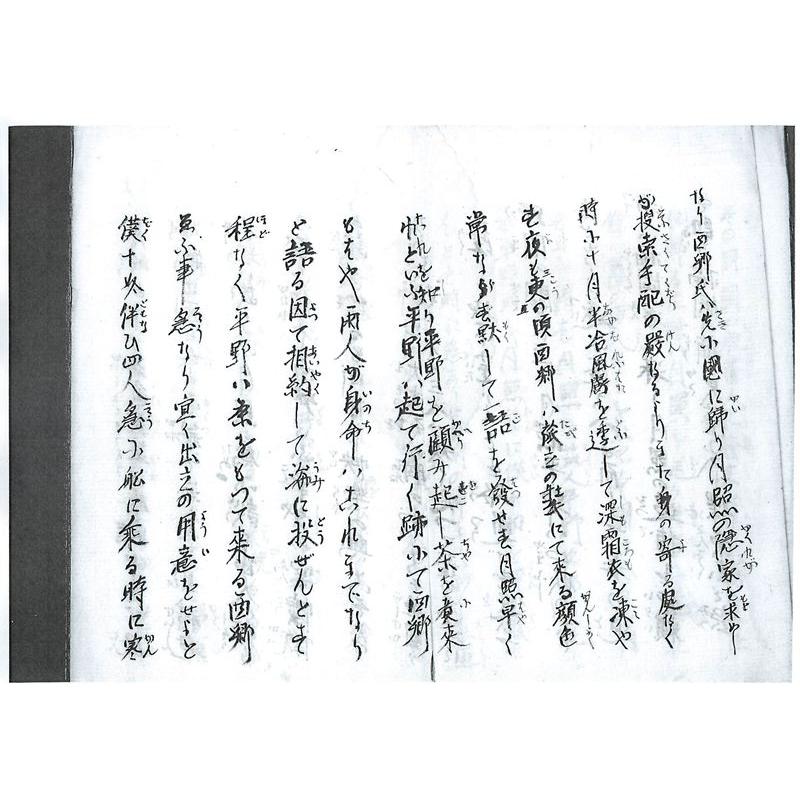 なり西郷氏ハ先小國に歸り月照の隠家を求め
が捜索手配の嚴なるよりまた身の寄る処なく
時小十月半冷風膚を透して深霜衣を凍や
す夜も三更の頃西郷ハ旅立の装にて来る顔色
常ならず黙して一語を發せず月照早く
これを知り平野を顧み起し茶を煮来
れといふ平野ハ起て行く跡小て西郷
もはや両人が身命ハこれまでなり
と語る因て相約して海に投ぜんとす
程なく平野ハ茶をもつて来る西郷
云ふ事急なり宜く出立の用意をせよと
僕十次伴ひ四人急小舩に乗る時に寒